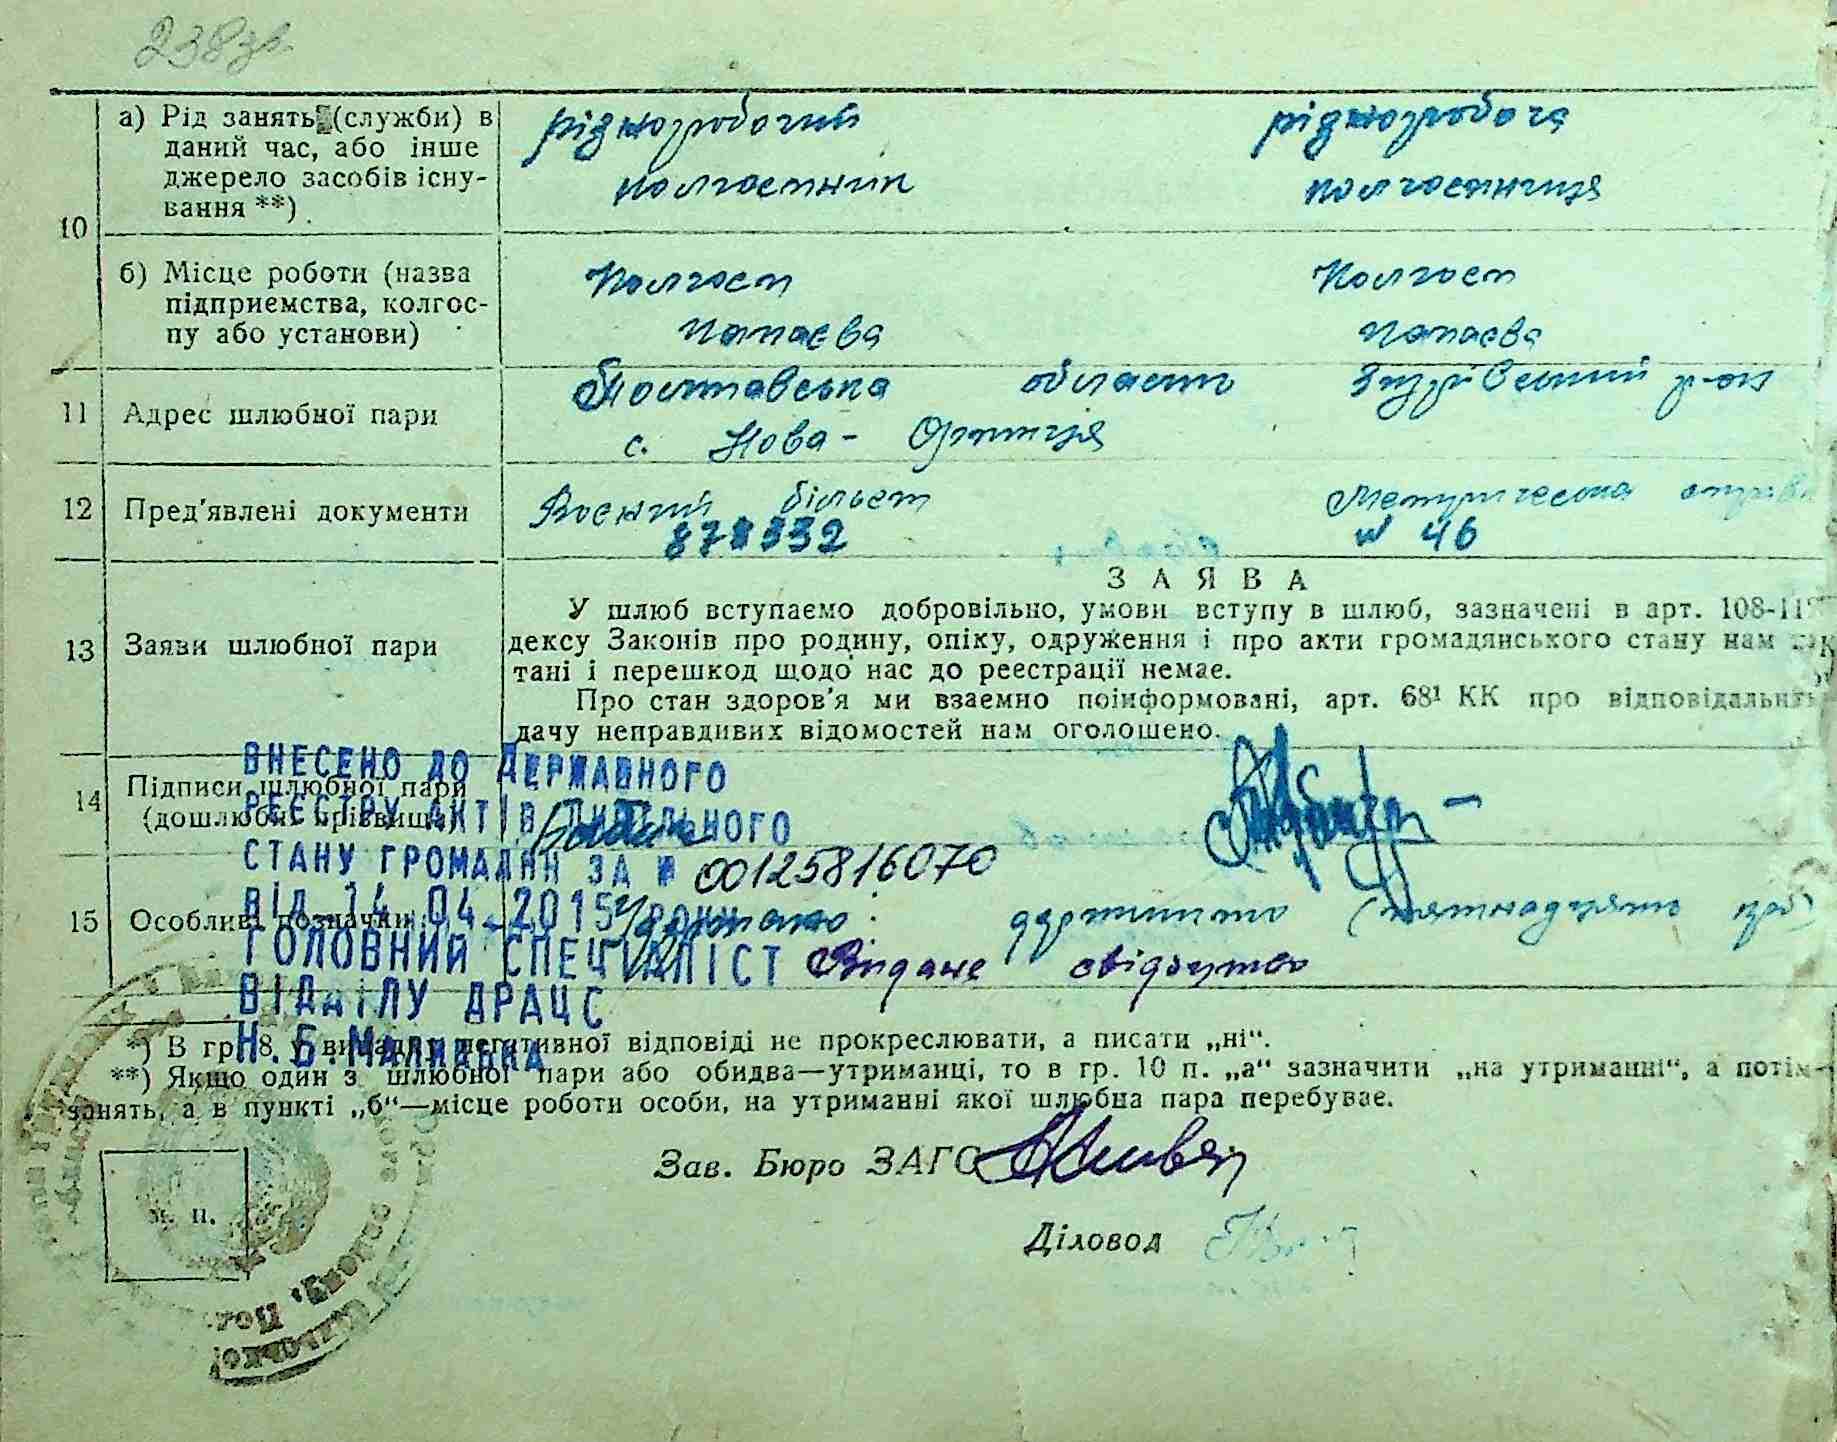 238зв.
10
а) Рід занять (службы) в
даний час, або інше
джерело засобів існу-
вання **)
різноробочий
колгоспник
різноробоча
колгоспниця
б) Місце роботи (назва
підприемства, колгос-
пу або установи)
Колгосп
Чапаєва
Колгосп
Чапаєва
11 Адрес шлюбної пари
Полтавська область
с. Нова-Оржиця
12 Пред'явлені документи
Воєнний більєт
Метрическа
№ 46
13 Заяви шлюбної пари
ЗАЯВА
У шлюб вступаємо добровільно, умови вступу в шлюб, зазначені в арт. 108-11
дексу Законів про родину, опіку, одруження і про акти громадянського стану нам
тані і перешкод щодо нас до реестрації немае.
Про стан здоров'я ми взаемно поінформовані, арт. 68¹ КК про відповідальність
дачу неправдивих відомостей нам оголошено.
14 Підписи шлюбної пари
(дошлюбні прізвища)
15 Особливі позначки
ВНЕСЕНО ДО ДЕРЖАВНОГО
РЕЄСТРУ АКТІВ ЦИВІЛЬНОГО
СТАНУ ГРОМАДЯН ЗА № 00125816070
ВІД 14.04.2015 РОКУ
ГОЛОВНИЙ СПЕЦІАЛІСТ
ВІДДІЛУ ДРАЦС
Н.Б.
(пятнадцять крб
Видане свідоцтво
*) В гр. 8 у випадку негативної відповіді не прокреслювати, а писати „ні“.
**) Якщо один з шлюбної пари або обидва—утриманці, то в гр. 10 п. „а“ зазначити „на утриманні“, а потім
занять, а в пункті „б“—місце роботи особи, на утриманні якої шлюбна пара перебувае.
Зав. Бюро ЗАГС
м. п.
Діловод